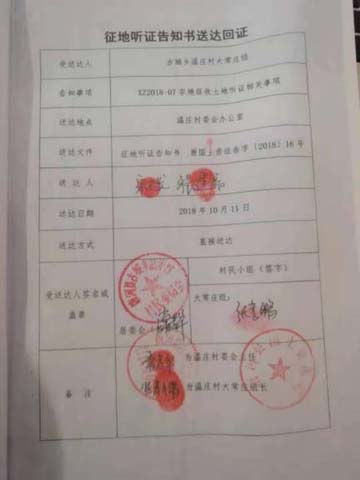 征地听证告知书送达回证
受送达人 古城乡温庄村大常庄组
告知事项 XZ2018-07宗地征收土地听证相关事项
送达地点 温庄村委会办公室
送达文件 征地听证告知书 唐国土资征告字〔2018〕16号
送达人
送达日期 2018年10月11日
送达方式 直接送达
受送达人签名或盖章
居委会（
村民小组（签字）
大常庄组：
备注
为温庄村委会主任
为温庄村大常庄组长